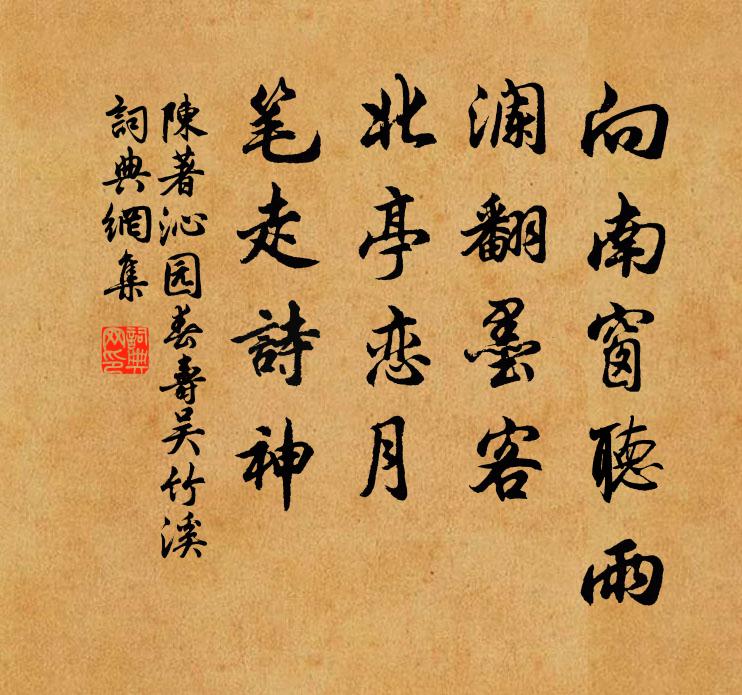 向南窗聽雨
澜翻墨客
北亭恋月
笔走詩神
陳著沁园春壽吴竹溪
詞典網集
詞典
网印